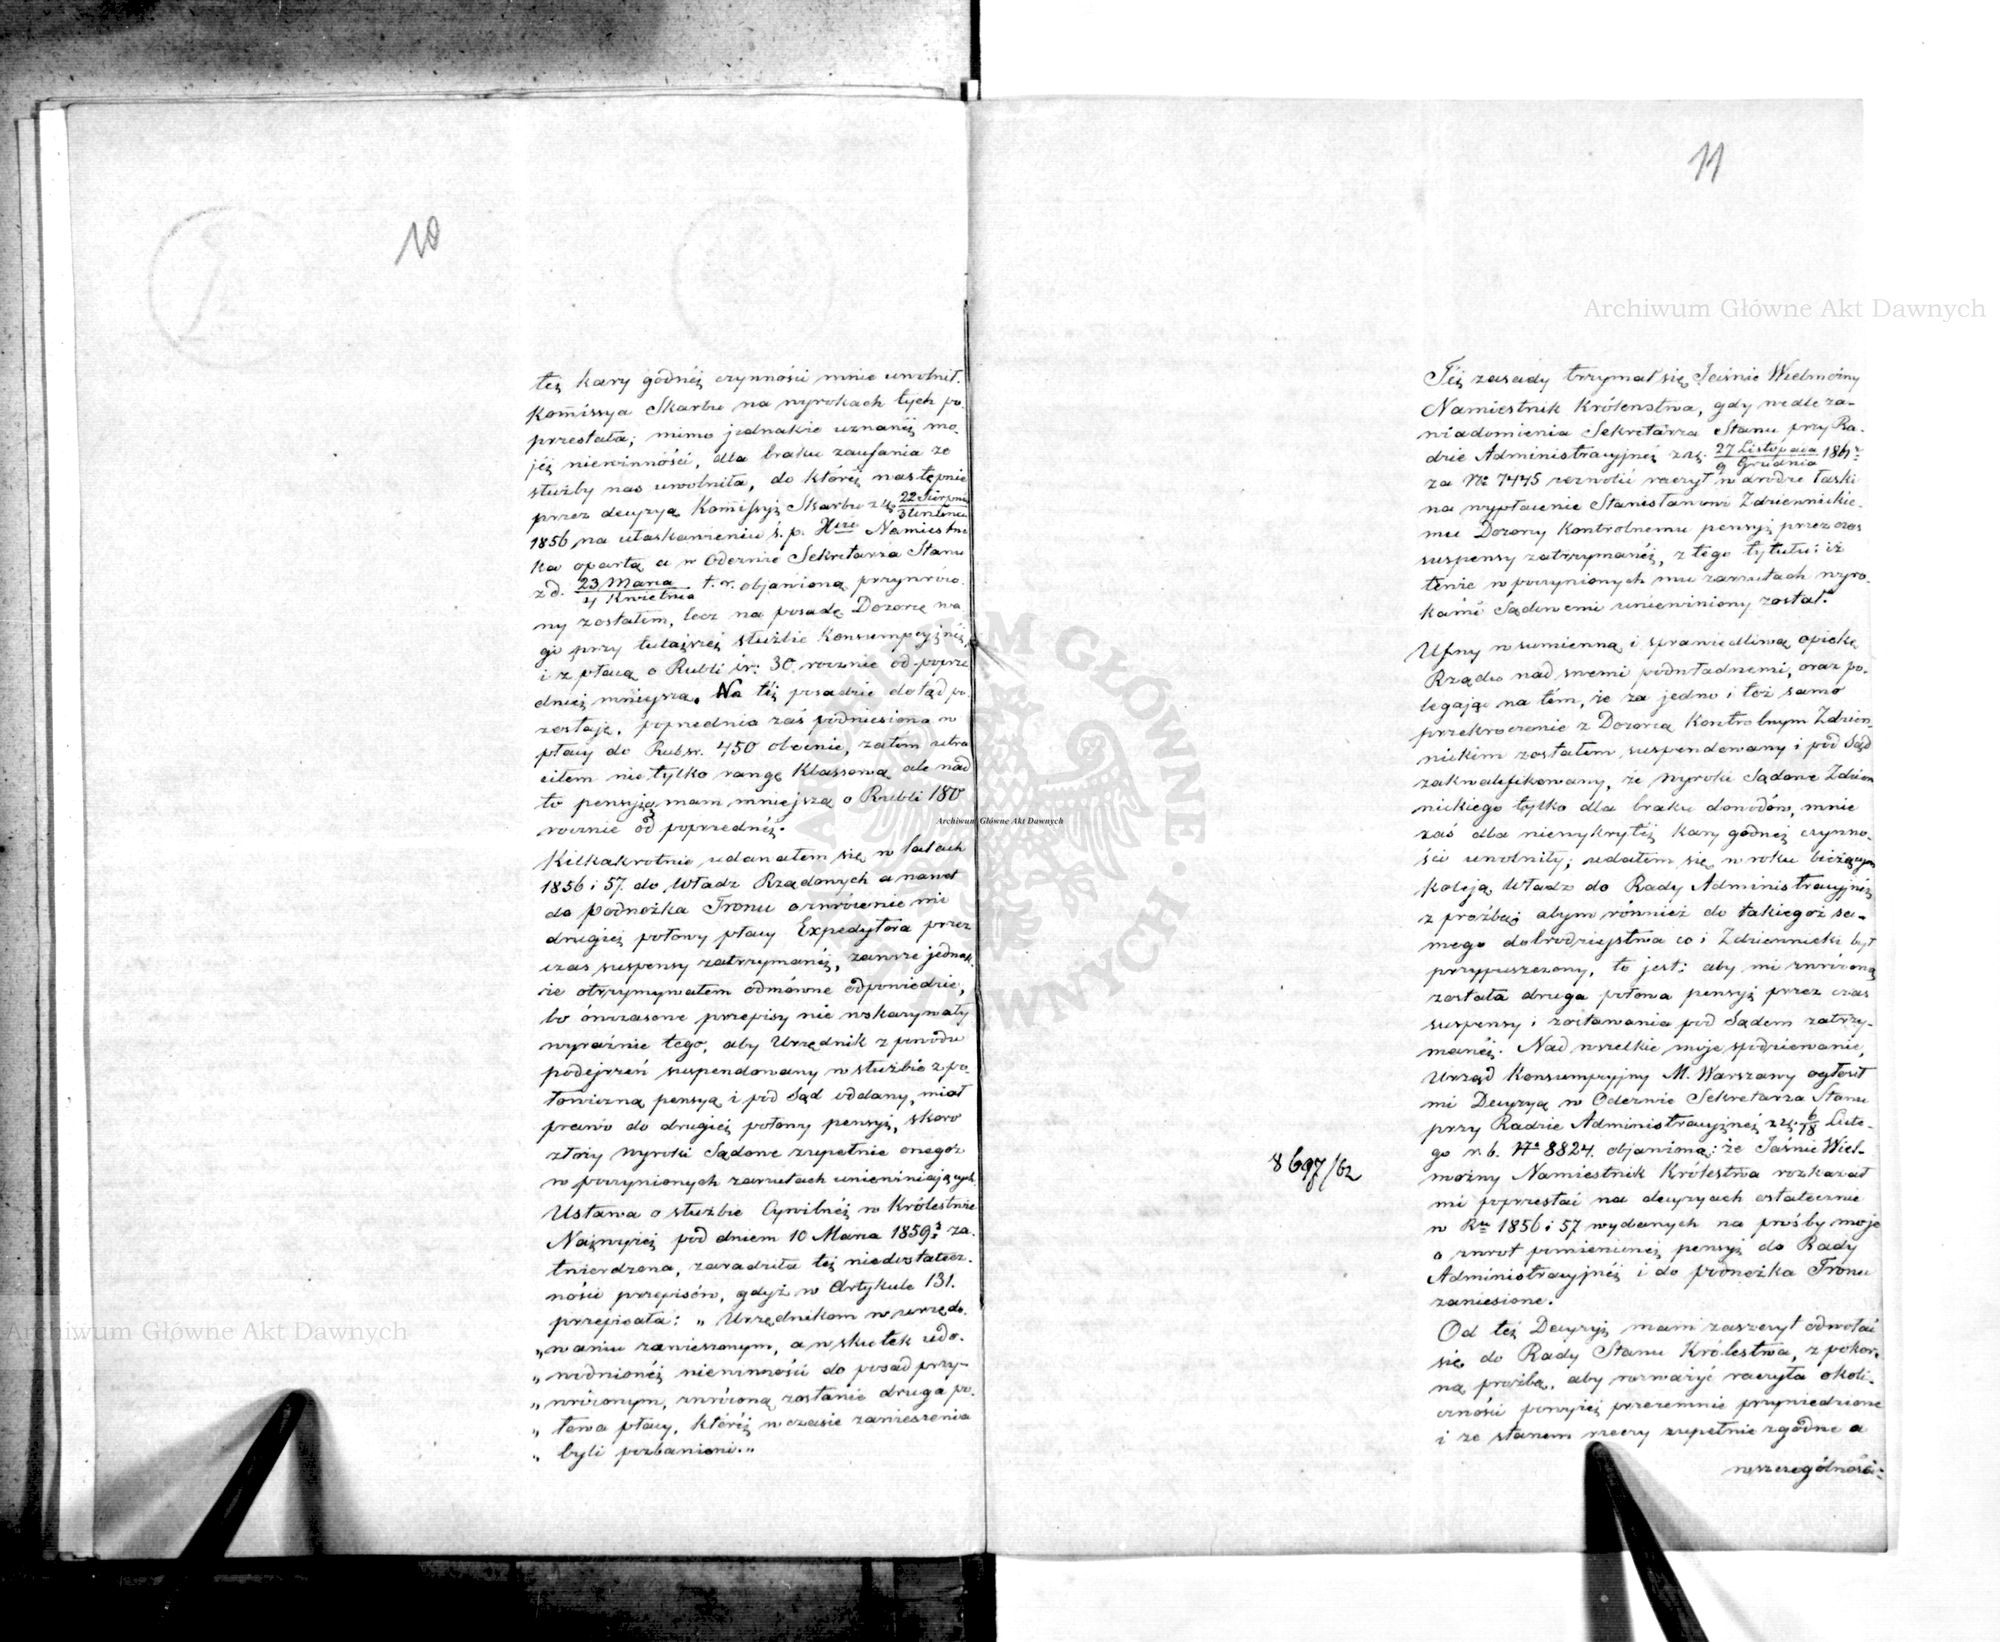 10
téj kary godnéj czynności mnie uwolnił.
Kommissya Skarbu na wyrokach tych po-
przestała; mimo jednakże uznanéj mo-
jéj niewinności, dla braku zaufania ze
służby nas uwolniła, do któréj następnie
przez decyzyą Kommissyi Skarbu z d. 22 Sierpnia / 3 Września
1856 na ułaskawieniu ś. p. Xcia Namiestni-
ka opartą a w Odezwie Sekretarza Stanu
z d. 23 Marca / 4 Kwietnia t. r. objawioną przywróco-
ny zostałem, lecz na posadę Dozorcy wa-
gi przy tutejszéj służbie Konsumpcyjnéj
i z płacą o Rubli sr: 30 rocznie od poprze-
dniéj mniejszą. Na téj posadzie dotąd po-
zostaję, poprzednia zaś podniesiona w
płacy do Rubsr. 450 obecnie, zatem utra-
ciłem nietylko rangę klassową ale nad
to pensyję mam mniejszą o Rubli 180
rocznie od poprzednéj.
Kilkakrotnie udawałem się w latach
1856 i 57. do Władz Rządowych a nawet
do podnóżka Tronu o zwrócenie mi
drugiéj połowy płacy Expedytora przez
czas suspensy zatrzymanéj, zawsze jednak-
że otrzymywałem odmówne odpowiedzie,
bo ówczasowe przepisy nie wskazywały
wyraźnie tego, aby Urzędnik z powodu
podejrzeń suspendowany w służbie z po-
łowiczną pensyą i pod Sąd oddany, miał
prawo do drugiéj połowy pensyi, skoro
złoży wyroki Sądowe zupełnie onegoż
w poczynionych zarzutach uniewiniających.
Ustawa o służbie Cywilnéj w Królestwie
Najwyżéj pod dniem 10 Marca 1859 r. za-
twierdzona, zaradziła téj niedostatecz-
ności przepisów, gdyż w Artykule 131.
przepisała: „Urzędnikom w urzędo-
„waniu zawieszonym, a w skutek udo-
„wodnionéj niewinności do posad przy-
„wróconym, zwróconą zostanie druga po-
„łowa płacy, któréj w czasie zawieszenia
„byli pozbawieni.„
11
Téj zasady trzymał się Jaśnie Wielmożny
Namiestnik Królewstwa, gdy wedle za-
wiadomienia Sekretarza Stanu przy Ra-
dzie Administracyjnéj z d. 27 Listopada / 9 Grudnia 1861 r.
za № 7445 zezwolić raczył w drodze łaski
na wypłacenie Stanisławowi Zdziennickie-
mu Dozorcy Kontrolnemu pensyi przez czas
suspensy zatrzymanéj, z tego tytułu: iż
tenże w poczynionych mu zarzutach wyro-
kami Sądowemi uniewiniony został.
Ufny w sumienną i sprawiedliwą opiekę
Rządu nad swemi podwładnemi, oraz po-
legając na tém, że za jedno i toż samo
przekroczenie z Dozorcą Kontrolnym Zdzien-
nickim zostałem, suspendowany i pod Sąd
zakwalifikowany, że wyroki Sądowe Zdzien-
nickiego tylko dla braku dowodów, mnie
zaś dla niewykrytéj kary godnéj czynno-
ści uwolniły; udałem się w roku bieżącym
koleją Władz do Rady Administracyjnéj
z prośbą abym również do takiegoż sa-
mego dobrodziejstwa co i Zdziennicki był
przypuszczony, to jest: aby mi zwróconą
została druga połowa pensyi przez czas
suspensy i zostawania pod Sądem zatrzy-
manéj. Nad wszelkie moje spodziewanie,
Urząd Konsumpcyjny M. Warszawy ogłosił
mi Decyzyą w Odezwie Sekretarza Stanu
przy Radzie Administracyjnéj z d. 6/18 Lute-
go r. b. № 8824. objawioną: że Jaśnie Wiel-
możny Namiestnik Królestwa rozkazał
mi poprzestać na decyzyach ostatecznie
w Ru 1856 i 57 wydanych na prośby moje
o zwrot pomienionéj pensyi do Rady
Administracyjnéj i do podnóżka Tronu
zaniesione.
8697/62
Od téj Decyzyi mam zaszczyt odwołać
się do Rady Stanu Królestwa, z pokor-
ną prośbą, aby rozważyć raczyła okoli-
czności powyżéj przezemnie przywiedzione
i ze stanem rzeczy zupełnie zgodne a
wszczególności:
Archiwum Główne Akt Dawnych
Archiwum Główne Akt Dawnych
Archiwum Główne Akt Dawnych
ARCHIWUM GŁÓWNE AKT DAWNYCH